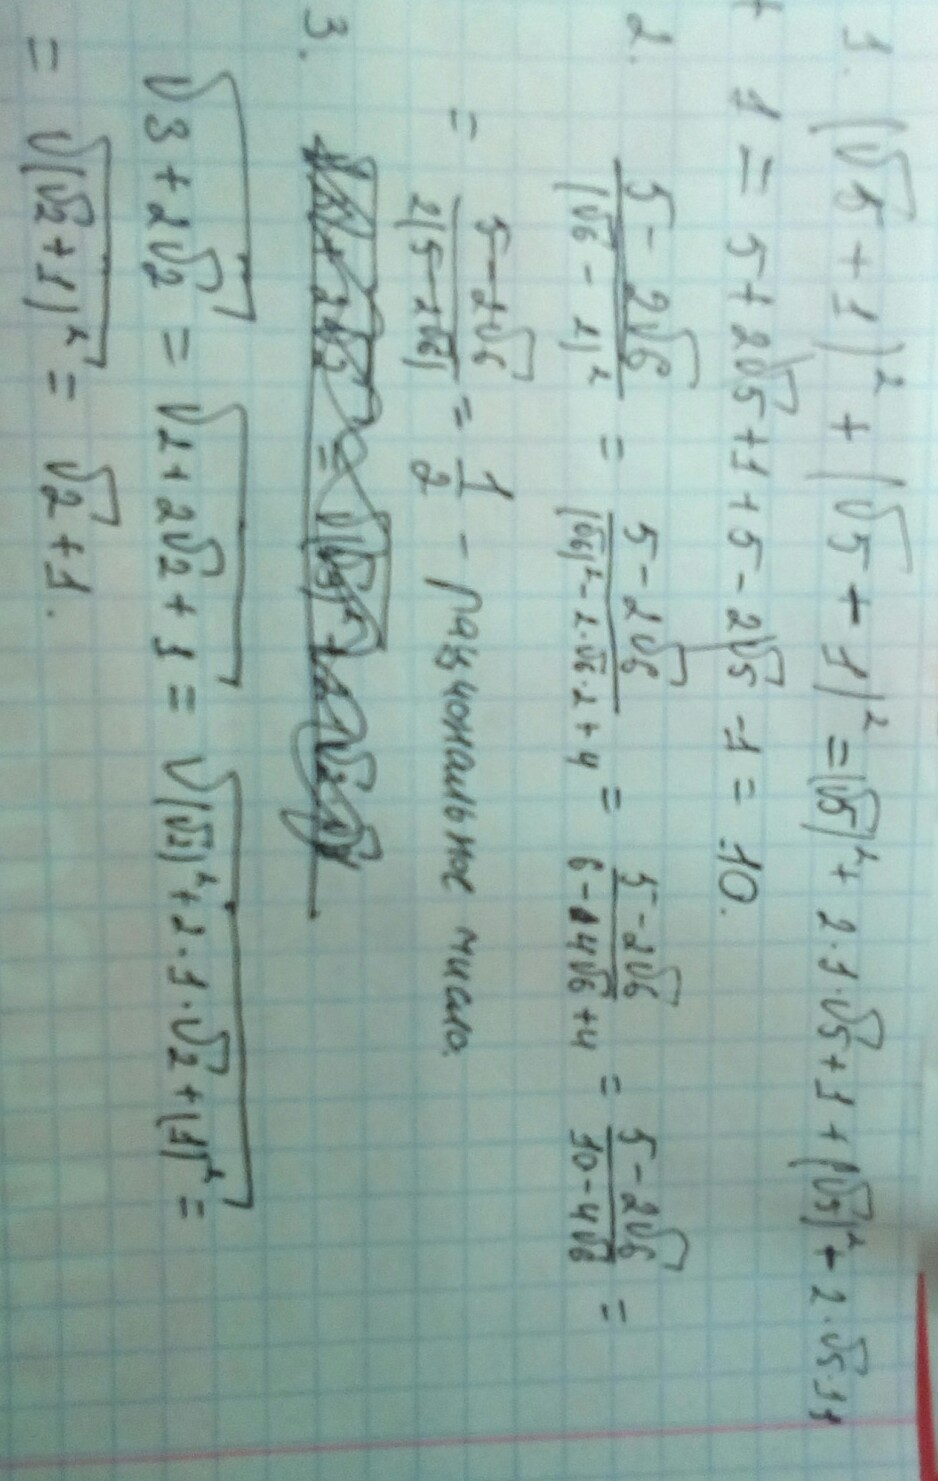 1. (√5 + 1)² + (√5 - 1)² = (√5)² + 2·1·√5 + 1 + (√5)² + 2·√5·1 +
+ 1 = 5 + 2√5 + 1 + 5 - 2√5 - 1 = 10.
2. (5 - 2√6)/(√6 - 2)² = (5 - 2√6)/((√6)² - 2·√6·2 + 4) = (5 - 2√6)/(6 - 4√6 + 4) = (5 - 2√6)/(10 - 4√6) =
= (5 - 2√6)/(2(5 - 2√6)) = 1/2 - рациональное число.
3.
√(3 + 2√2) = √(2 + 2√2 + 1) = √((√2)² + 2·1·√2 + (1)²) =
= √((√2 + 1)²) = √2 + 1.